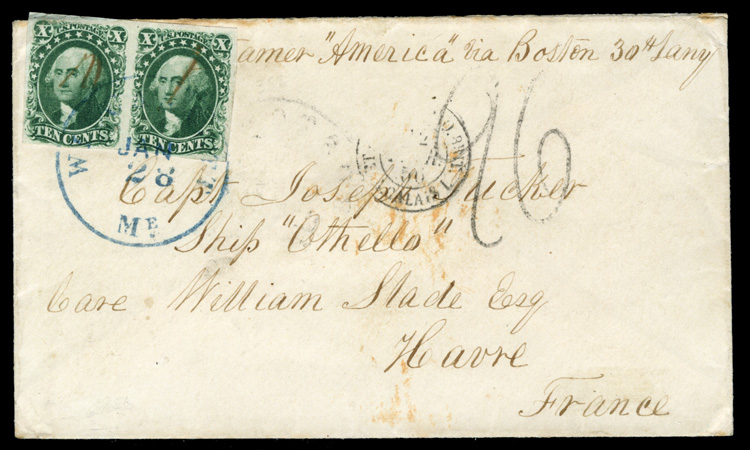 X U.S. POSTAGE X
TEN CENTS
X U.S. POSTAGE X
TEN CENTS
"America" via Boston 30th Jany
JAN
28
Me
26
CALAIS
Capt Joseph Tucker
Ship "Othello"
Care William Slade Esq
Havre
France